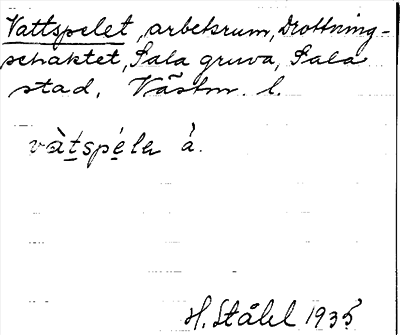 Vattspelet, arbetsrum, Drottning-
schaktet, Sala gruva, Sala
stad, Västm. l.
vàtspélа å.
H. Ståhl 1935